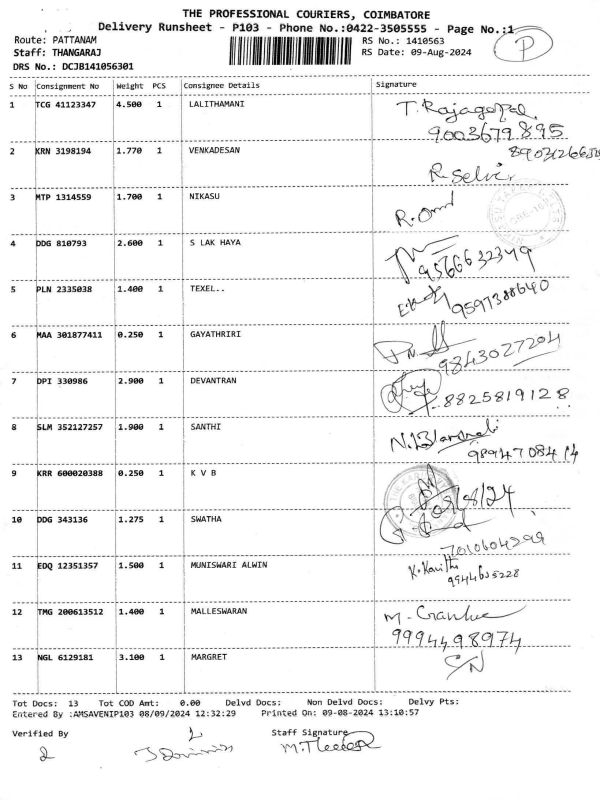 THE PROFESSIONAL COURIERS, COIMBATORE
Delivery Runsheet - P103 - Phone No.:0422-3505555 - Page No.:1
P
Route: PATTANAM
RS No.: 1410563
Staff: THANGARAJ
RS Date: 09-Aug-2024
DRS No.: DCJB141056301
S No Consignment No Weight PCS Consignee Details Signature
1 TCG 41123347 4.500 1 LALITHAMANI T. Rajagopal
9003679895
2 KRN 3198194 1.770 1 VENKADESAN
R. Selvi
3 MTP 1314559 1.700 1 NIKASU
4 DDG 810793 2.600 1 S LAK HAYA
9566632349
5 PLN 2335038 1.400 1 TEXEL..
9597388640
6 MAA 301877411 0.250 1 GAYATHRIRI
9843027204
7 DPI 330986 2.900 1 DEVANTRAN
8825819128
8 SLM 352127257 1.900 1 SANTHI
9894708414
9 KRR 600020388 0.250 1 K V B
09/8/24
10 DDG 343136 1.275 1 SWATHA
7010604299
11 EDQ 12351357 1.500 1 MUNISWARI ALWIN K. Kavitha
9944635228
12 TMG 200613512 1.400 1 MALLESWARAN
9994498974
13 NGL 6129181 3.100 1 MARGRET
C/N
Tot Docs: 13 Tot COD Amt: 0.00 Delvd Docs: Non Delvd Docs: Delvy Pts:
Entered By :AMSAVENIP103 08/09/2024 12:32:29 Printed On: 09-08-2024 13:10:57
Verified By Staff Signature